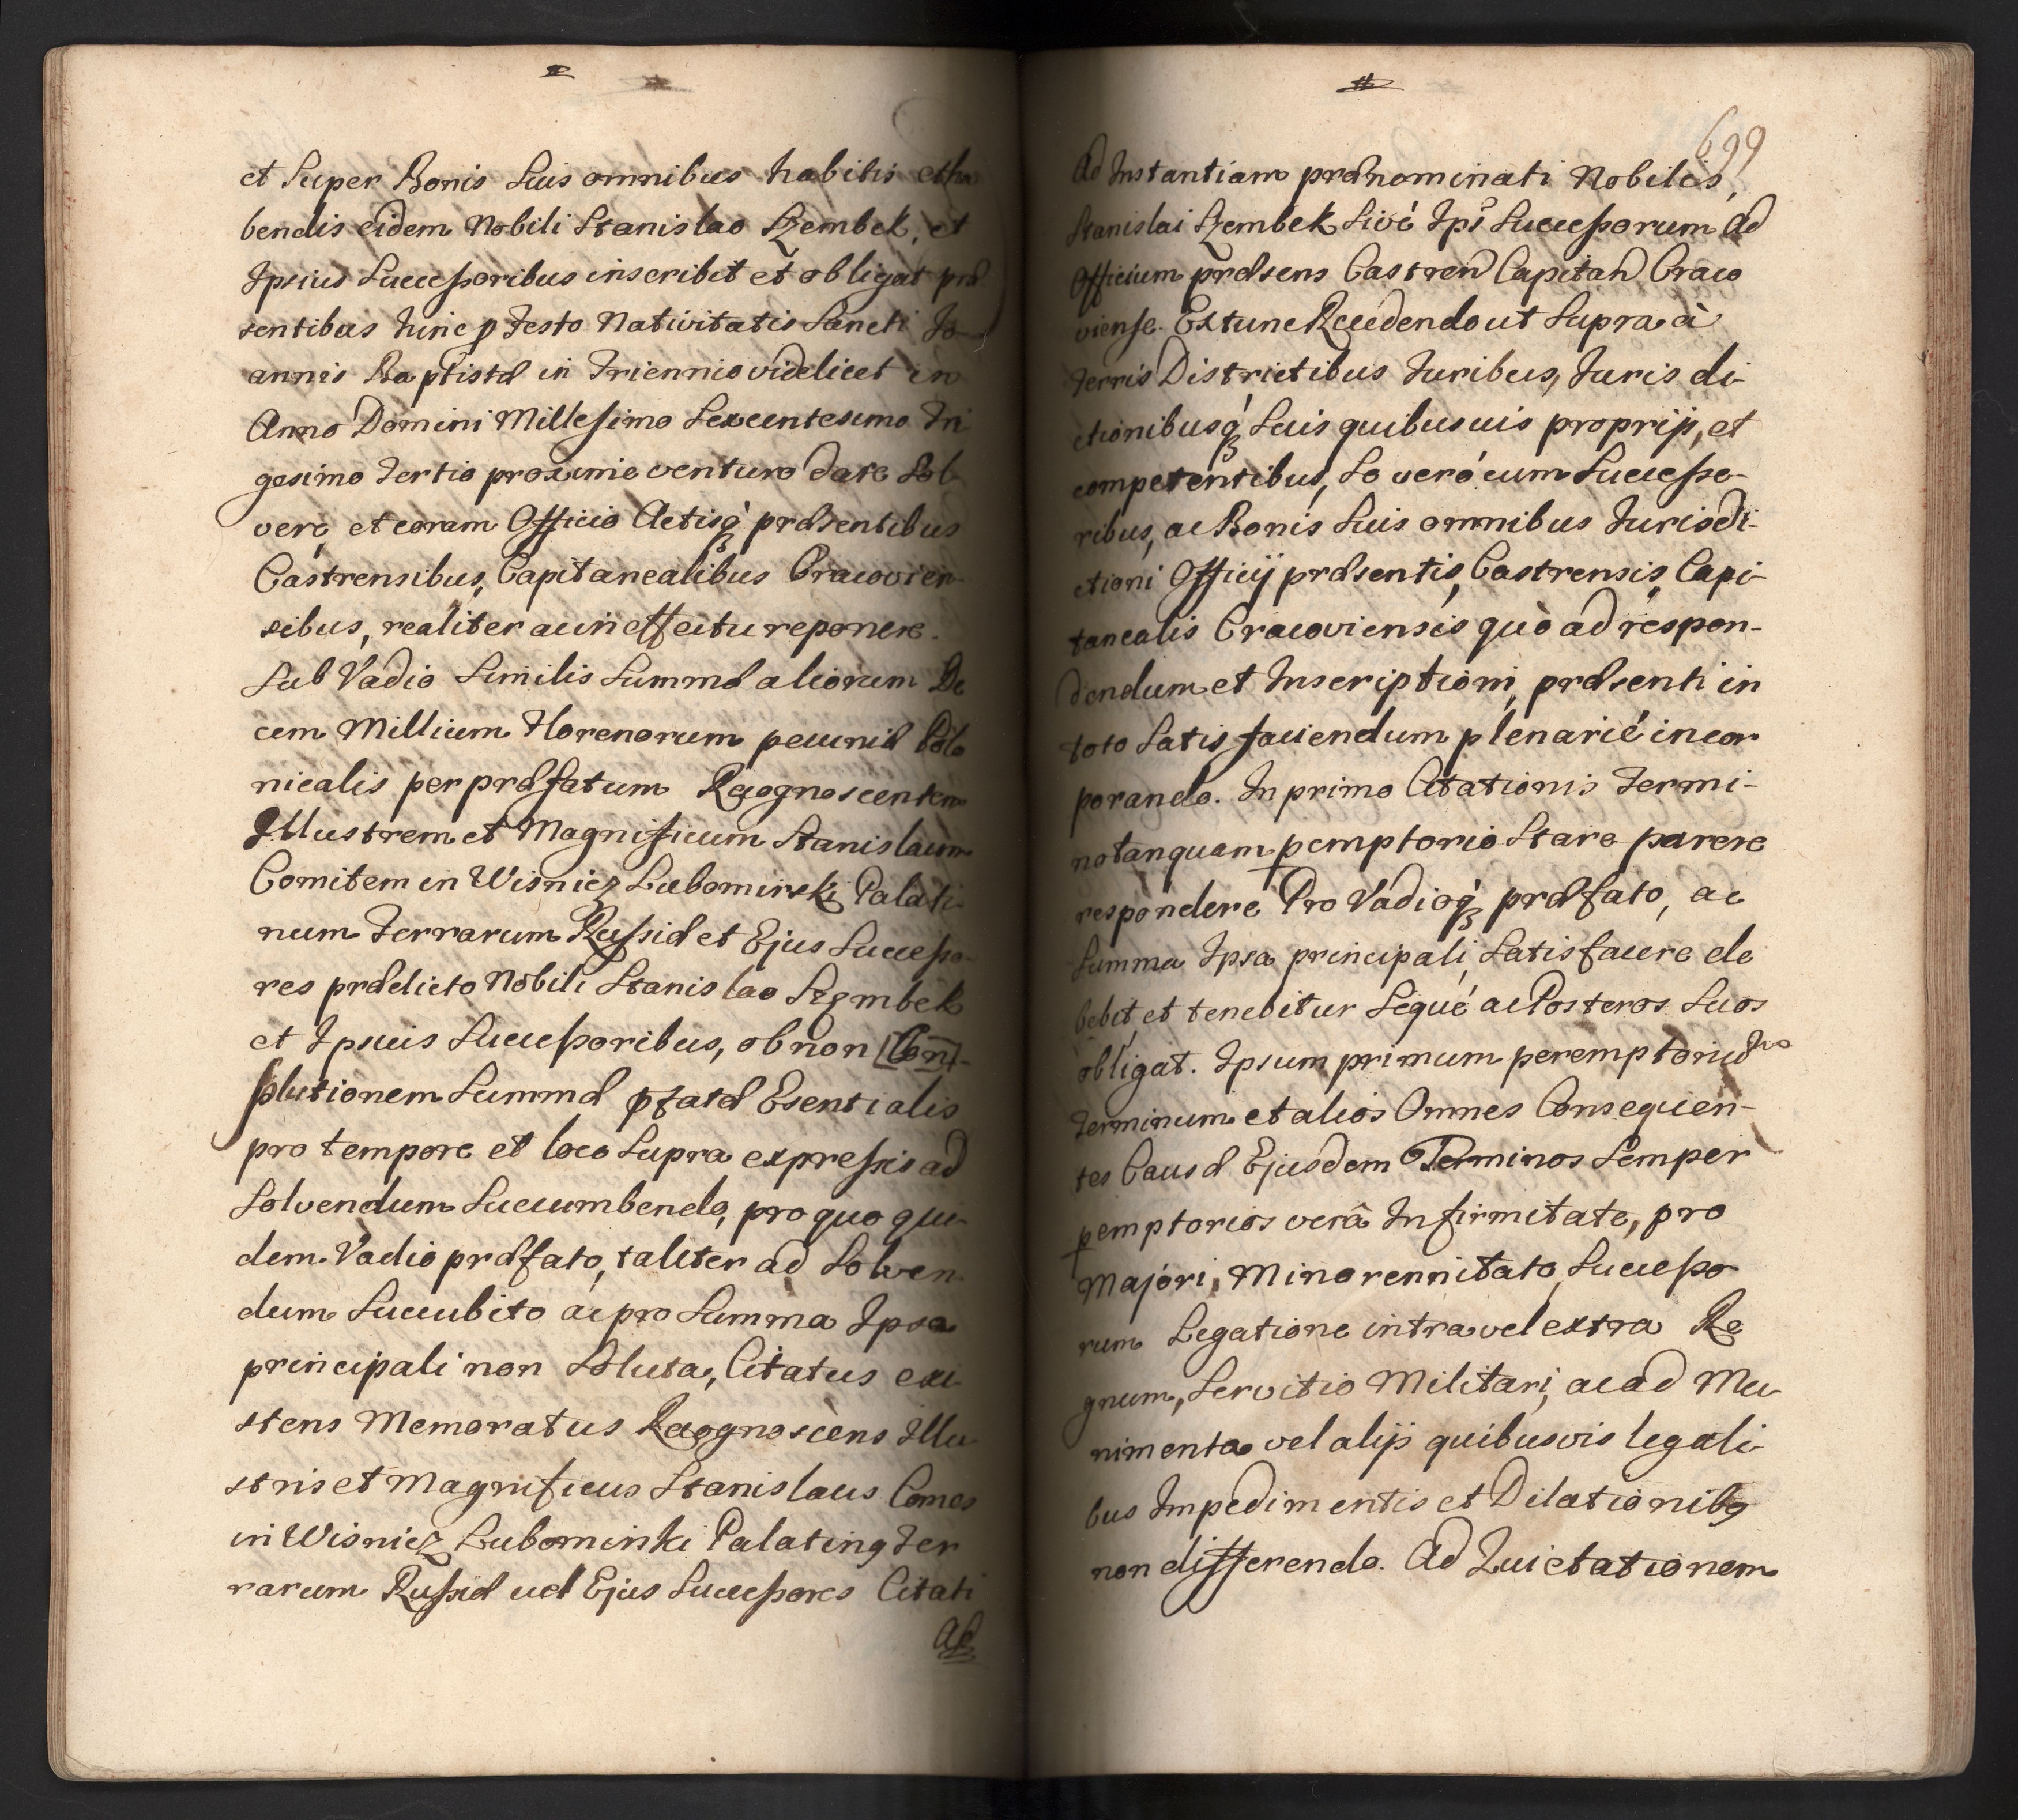 et Super Bonis Suis omnibus habitis et ha
bendis eidem Nobili Stanislao Szembek, et
Ipsius Successoribus inscribit et obligat præ
sentibus hinc p Festo Nativitatis Sancti Jo
annis Baptistæ in Triennio videlicet in
Anno Domini Millesimo Sexcentesimo Tri
gesimo Tertio proxime venturo dare Sol
vere, et coram Officio Actisq́ præsentibus
Castrensibus, Capitanealibus Cracovien
sibus, realiter ac in effectu reponere.
Sub Vadio Similis Summæ aliorum De
cem Millium Florenorum pecuniæ Polo
nicalis per præfatum Recognoscentem
Illustrem et Magnificum Stanislaum
Comitem in Wisnicz Lubomirski Palati
num Terrarum Russiæ et Ejus Successo
res prædicto Nobili Stanislao Szembek
et Ipsius Successoribus, ob non [Con]
solutionem Summæ pfatæ Esentialis
pro tempore et loco Supra expressis ad
Solvendum Succumbendo, pro quo qui
dem Vadio præfato, taliter ad Solven
dum Succubito ac pro Summa Ipsa
principali non Soluta, Citatus exi
stens Memoratus Recognoscens Illu
stris et Magnificus Stanislaus Comes
in Wisnicz Lubomirski Palatinq Ter
rarum Russiæ vel Ejus Successores Citati
Ad
699
Ad Instantiam prænominati Nobilis,
Stanislai Szembek Sivé Ips Successorum ad
Officium præsens Castren Capitan Craco
viense. Ex tunc Recedendo ut Supra à
Terris Districtibus Juribus, Juris di
ctionibusq́ Suis quibusuis proprijs, et
competentibus, Se veró cum Successo
ribus, ac Bonis Suis omnibus Jurisdi
ctioni Officij præsentis, Castrensis, Capi
tanealis Cracoviensis quò ad respon
dendum et Inscriptioni præsenti in
toto Satis faciendum plenarié incor
porando. In primo Citationis Termi
no tanquam pemptorio Stare parere
respondere Pro Vadioq́ præfato, ac
Summa Ipsa principali, Satisfacere de
bebit, et tenebitur Sequé ac Posteros Suos
obligat. Ipsum primum peremptorium
Terminum et alios Omnes Consequen
tes Causæ Ejusdem Terminos Semper
pemptorios verâ Infirmitate, pro
Majori, Minorennitate, Successo
rum Legatione intra vel extra Re
gnum, Servitio Militari, ac ad Mu
nimenta vel alijs quibusvis legali
bus Impedimentis et Dilationibq
non differendo. Ad Quietationem